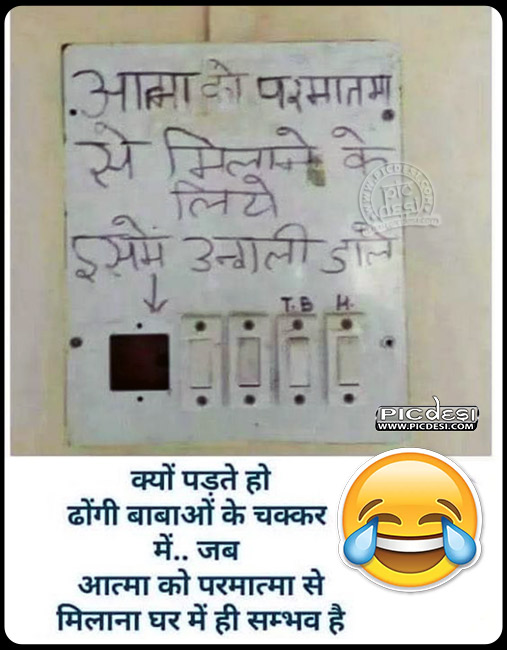 आत्मा को परमातमा
से मिलाने के
लिये
इसमें उन्गली डाले
T.B H.
WWW.PICDESI.COM
PIC
desi
PICdesi
WWW.PICDESI.COM
क्यों पड़ते हो
ढोंगी बाबाओं के चक्कर
में.. जब
आत्मा को परमात्मा से
मिलाना घर में ही सम्भव है